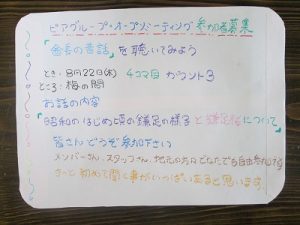 ピアグループ・オープンミーティング 参加者募集
「会長の昔話」を聴いてみよう
とき・8月22日(水) 4コマ目 カウント3
ところ・梅の間
お話の内容
「昭和のはじめ頃の鎌足の様子と鎌足桜について」
皆さんどうぞ参加下さい
メンバーさん、スタッフさん、地元の方々どなたでも自由参加です
きっと初めて聞く事がいっぱいあると思います。